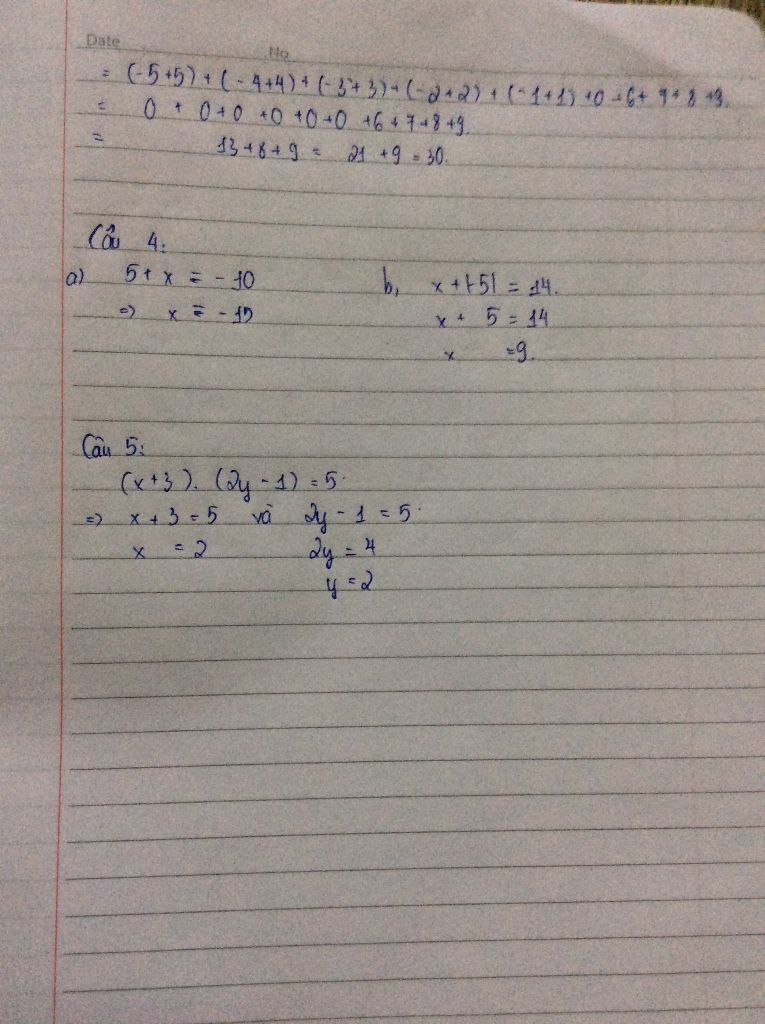 Date No
= (-5+5) + (-4+4) + (-3+3) + (-2+2) + (-1+1) +0 +6+ 7+ 8 +9.
= 0 + 0+0 +0 +0+0 +6+7+8+9.
= 13+8+9 = 21 +9 =30.
Câu 4:
a) 5+ x = -10 b, x +|-5| = 14.
=> x = -15 x + 5 = 14
x =9.
Câu 5:
(x+3). (2y - 1) = 5.
=> x + 3 = 5 và 2y - 1 = 5.
x = 2 2y = 4
y = 2